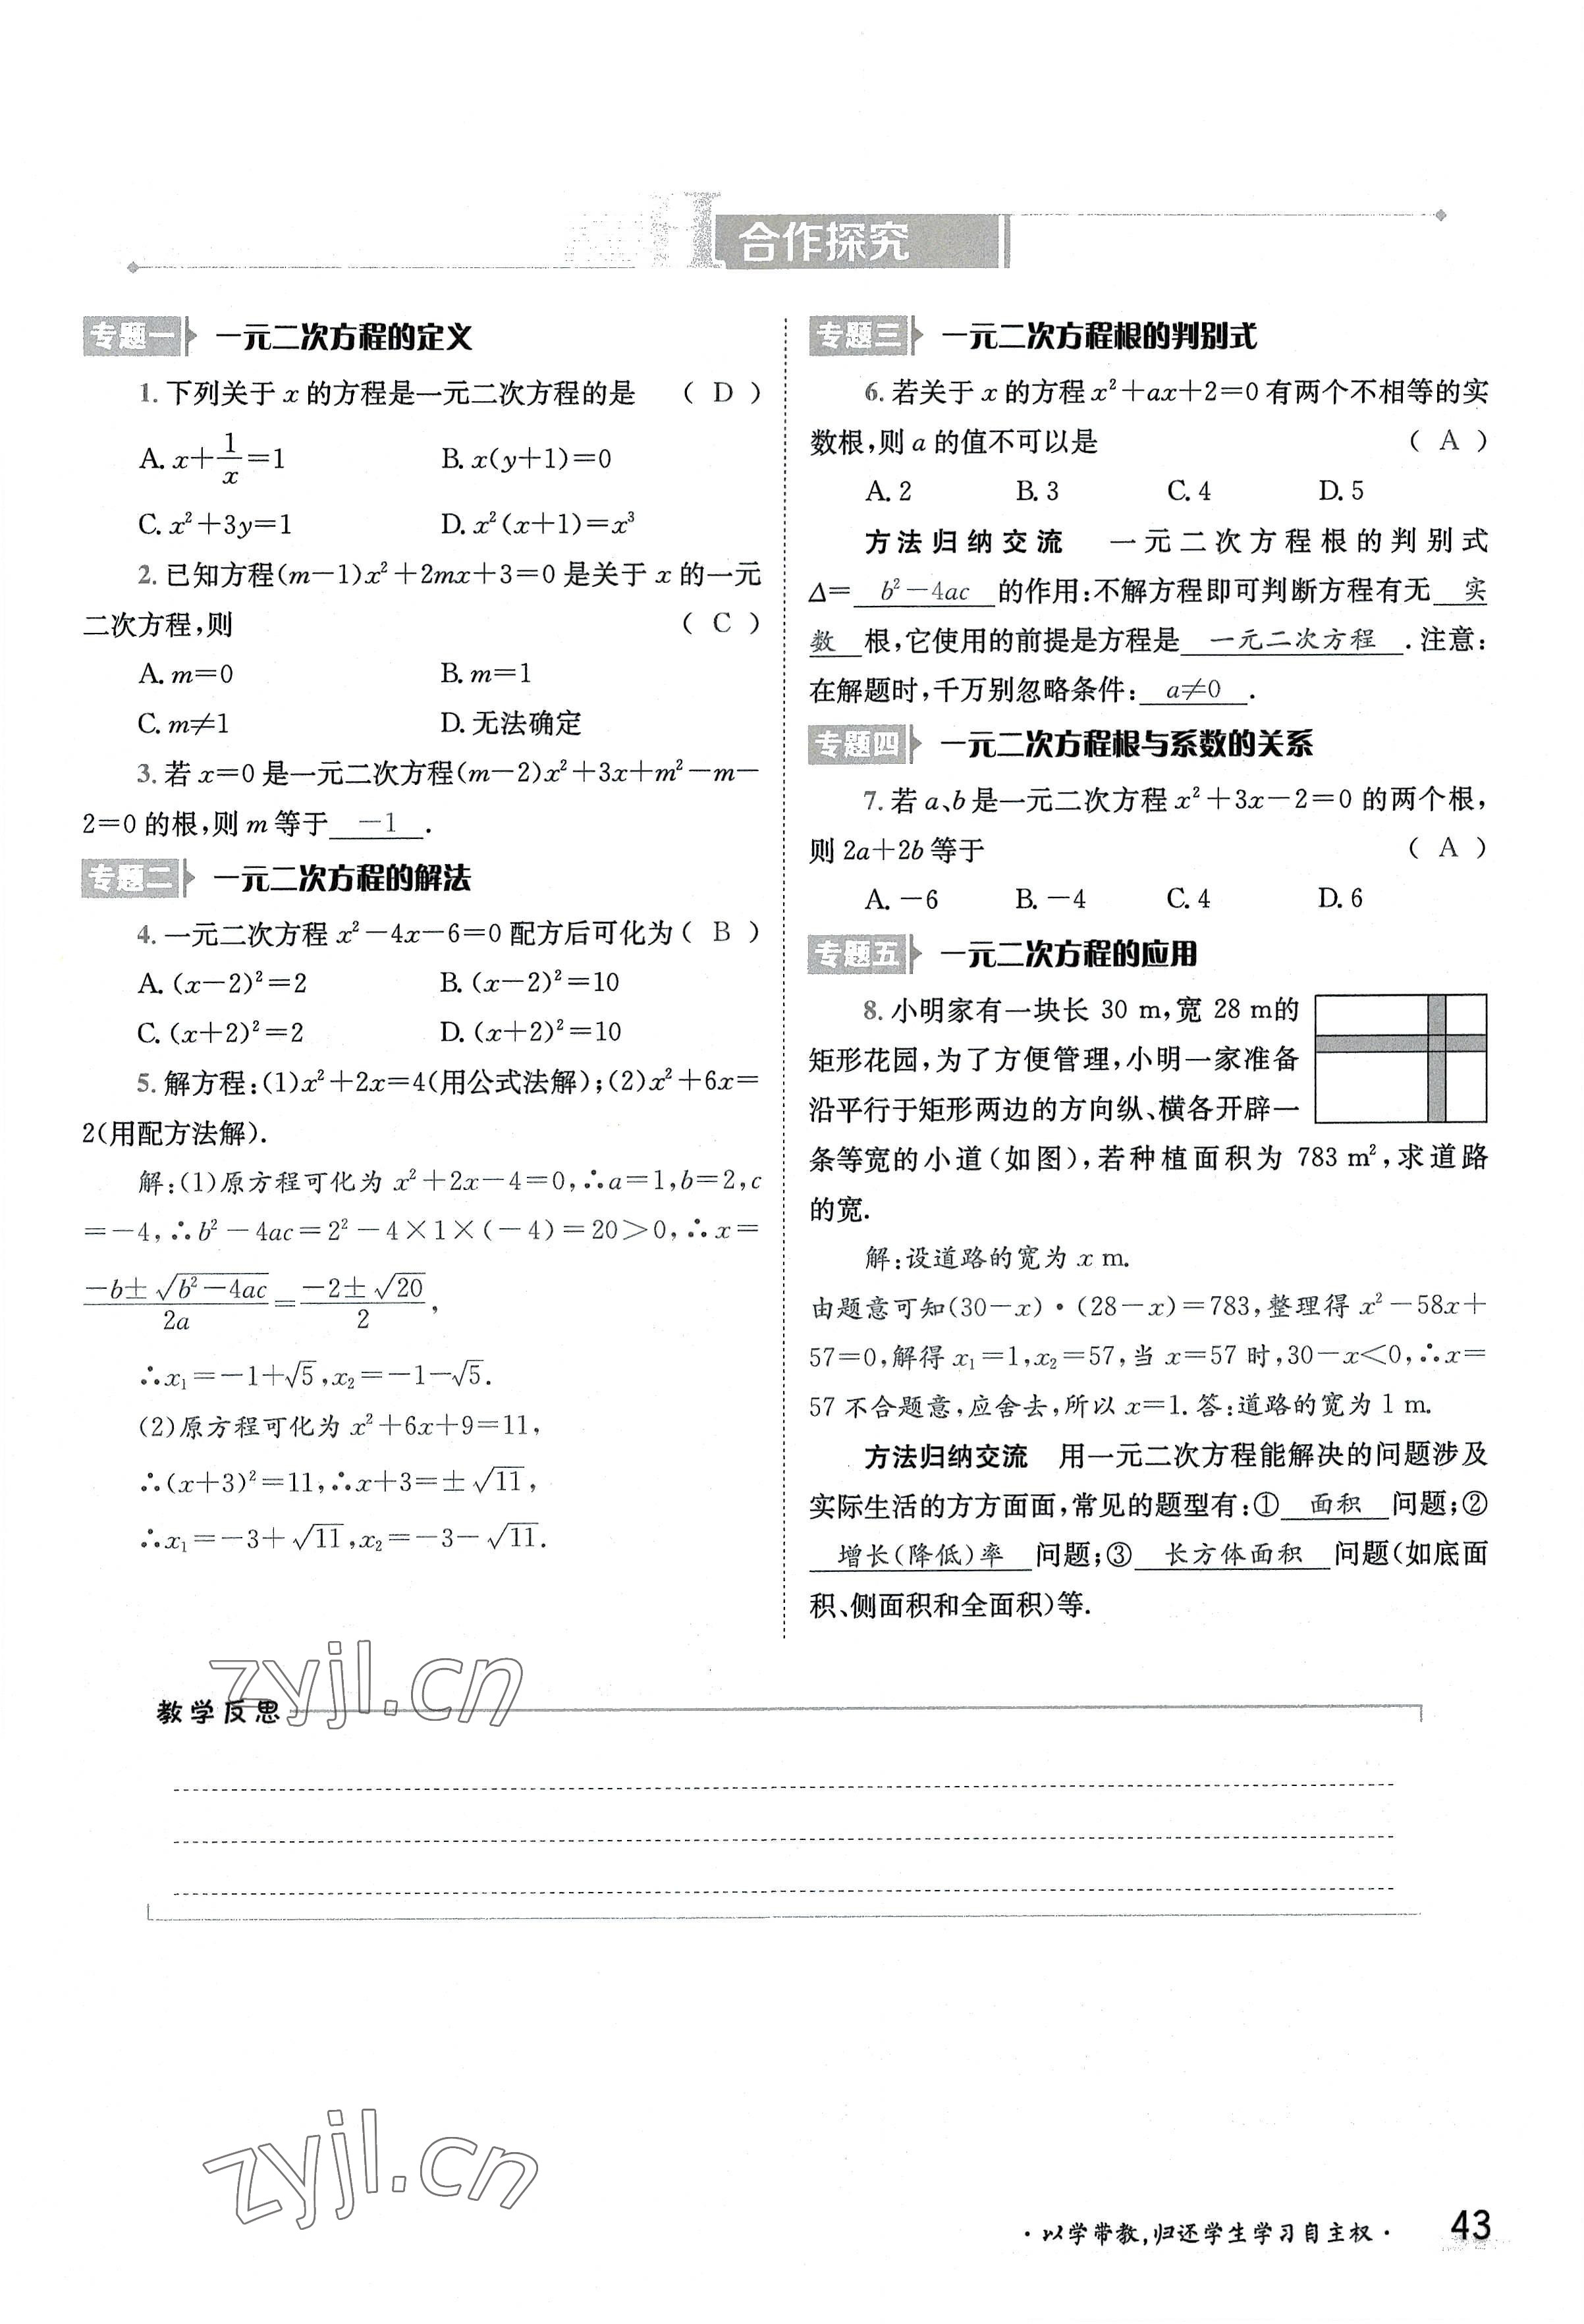 合作探究
专题一 一元二次方程的定义
1. 下列关于 x 的方程是一元二次方程的是 ( D )
A. x+1/x=1 B. x(y+1)=0
C. x²+3y=1 D. x²(x+1)=x³
2. 已知方程(m-1)x²+2mx+3=0 是关于 x 的一元
二次方程,则 ( C )
A. m=0 B. m=1
C. m≠1 D. 无法确定
3. 若 x=0 是一元二次方程(m-2)x²+3x+m²-m-
2=0 的根,则 m 等于 -1 .
专题二 一元二次方程的解法
4. 一元二次方程 x²-4x-6=0 配方后可化为 ( B )
A. (x-2)²=2 B. (x-2)²=10
C. (x+2)²=2 D. (x+2)²=10
5. 解方程:(1)x²+2x=4(用公式法解);(2)x²+6x=
2(用配方法解).
解:(1)原方程可化为 x²+2x-4=0,∴a=1,b=2,c
=-4,∴b²-4ac=2²-4×1×(-4)=20>0,∴x=
(-b±√(b²-4ac))/2a=(-2±√20)/2,
∴x₁=-1+√5,x₂=-1-√5.
(2)原方程可化为 x²+6x+9=11,
∴(x+3)²=11,∴x+3=±√11,
∴x₁=-3+√11,x₂=-3-√11.
专题三 一元二次方程根的判别式
6. 若关于 x 的方程 x²+ax+2=0 有两个不相等的实
数根,则 a 的值不可以是 ( A )
A. 2 B. 3 C. 4 D. 5
方法归纳交流 一元二次方程根的判别式
Δ= b²-4ac 的作用:不解方程即可判断方程有无 实
数 根,它使用的前提是方程是 一元二次方程 .注意:
在解题时,千万别忽略条件: a≠0 .
专题四 一元二次方程根与系数的关系
7. 若 a、b 是一元二次方程 x²+3x-2=0 的两个根,
则 2a+2b 等于 ( A )
A. -6 B. -4 C. 4 D. 6
专题五 一元二次方程的应用
8. 小明家有一块长 30 m,宽 28 m的
矩形花园,为了方便管理,小明一家准备
沿平行于矩形两边的方向纵、横各开辟一
条等宽的小道(如图),若种植面积为 783 m²,求道路
的宽.
解:设道路的宽为 x m.
由题意可知(30-x)·(28-x)=783,整理得 x²-58x+
57=0,解得 x₁=1,x₂=57,当 x=57 时,30-x<0,∴x=
57 不合题意,应舍去,所以 x=1. 答:道路的宽为 1 m.
方法归纳交流 用一元二次方程能解决的问题涉及
实际生活的方方面面,常见的题型有:① 面积 问题;②
增长(降低)率 问题;③ 长方体面积 问题(如底面
积、侧面积和全面积)等.
zyjl.cn
教学反思
zyjl.cn
·以学带教,归还学生学习自主权· 43